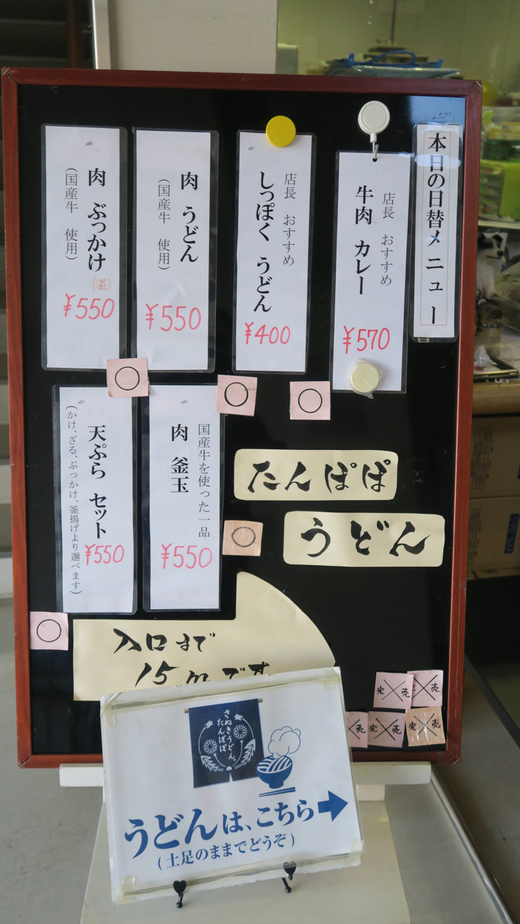 本日の日替メニュー
店長 おすすめ
牛肉 カレー
¥570
店長 おすすめ
しっぽく うどん
¥400
肉 うどん
(国産牛 使用)
¥550
肉 ぶっかけ
(国産牛 使用)
¥550
国産牛を使った一品
肉 釜玉
¥550
天ぷら セット
(かけ、ざる、ぶっかけ、釜揚げより選べます)
¥550
たんぽぽ
うどん
入口まで
15mです
完売
完売
売
完売
売
さぬきうどん
たんぽぽ
うどんは、こちら→
(土足のままでどうぞ)